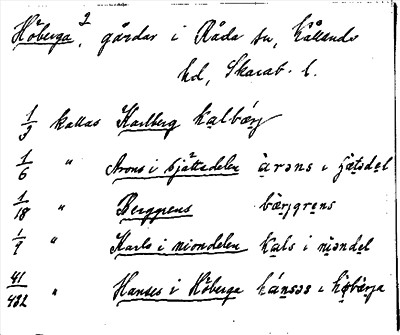 Höberga 2, gårdar i Råda sn, Kållands
hd, Skarab. l.
1/3 kallas Karlberg kalbærj
1/6 " Arons i sjättedelen àrəns i ʃætədel
1/18 " Berggrens bærjgrens
1/9 " Karls i niondelen kals i niəndel
41/432 " Hanses i Höberga hánsəs i høbærja